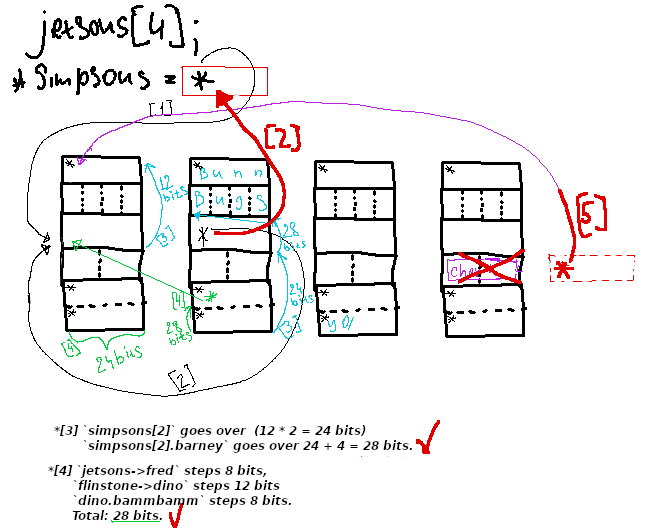 jetsons[4];
* Simpsons = *
[1]
[2]
[5]
*
* * * *
12 bits
[3]
B u n n
B u g s
*
28 bits
Cha
*
[4]
*
28 bits
24 bits
[3]
* * * *
* * * *
y 0/
[4]
24 bits
[2]
*[3] `simpsons[2]` goes over (12 * 2 = 24 bits)
`simpsons[2].barney` goes over 24 + 4 = 28 bits.
*[4] `jetsons->fred` steps 8 bits,
`flinstone->dino` steps 12 bits
`dino.bammbamm` steps 8 bits.
Total: 28 bits.